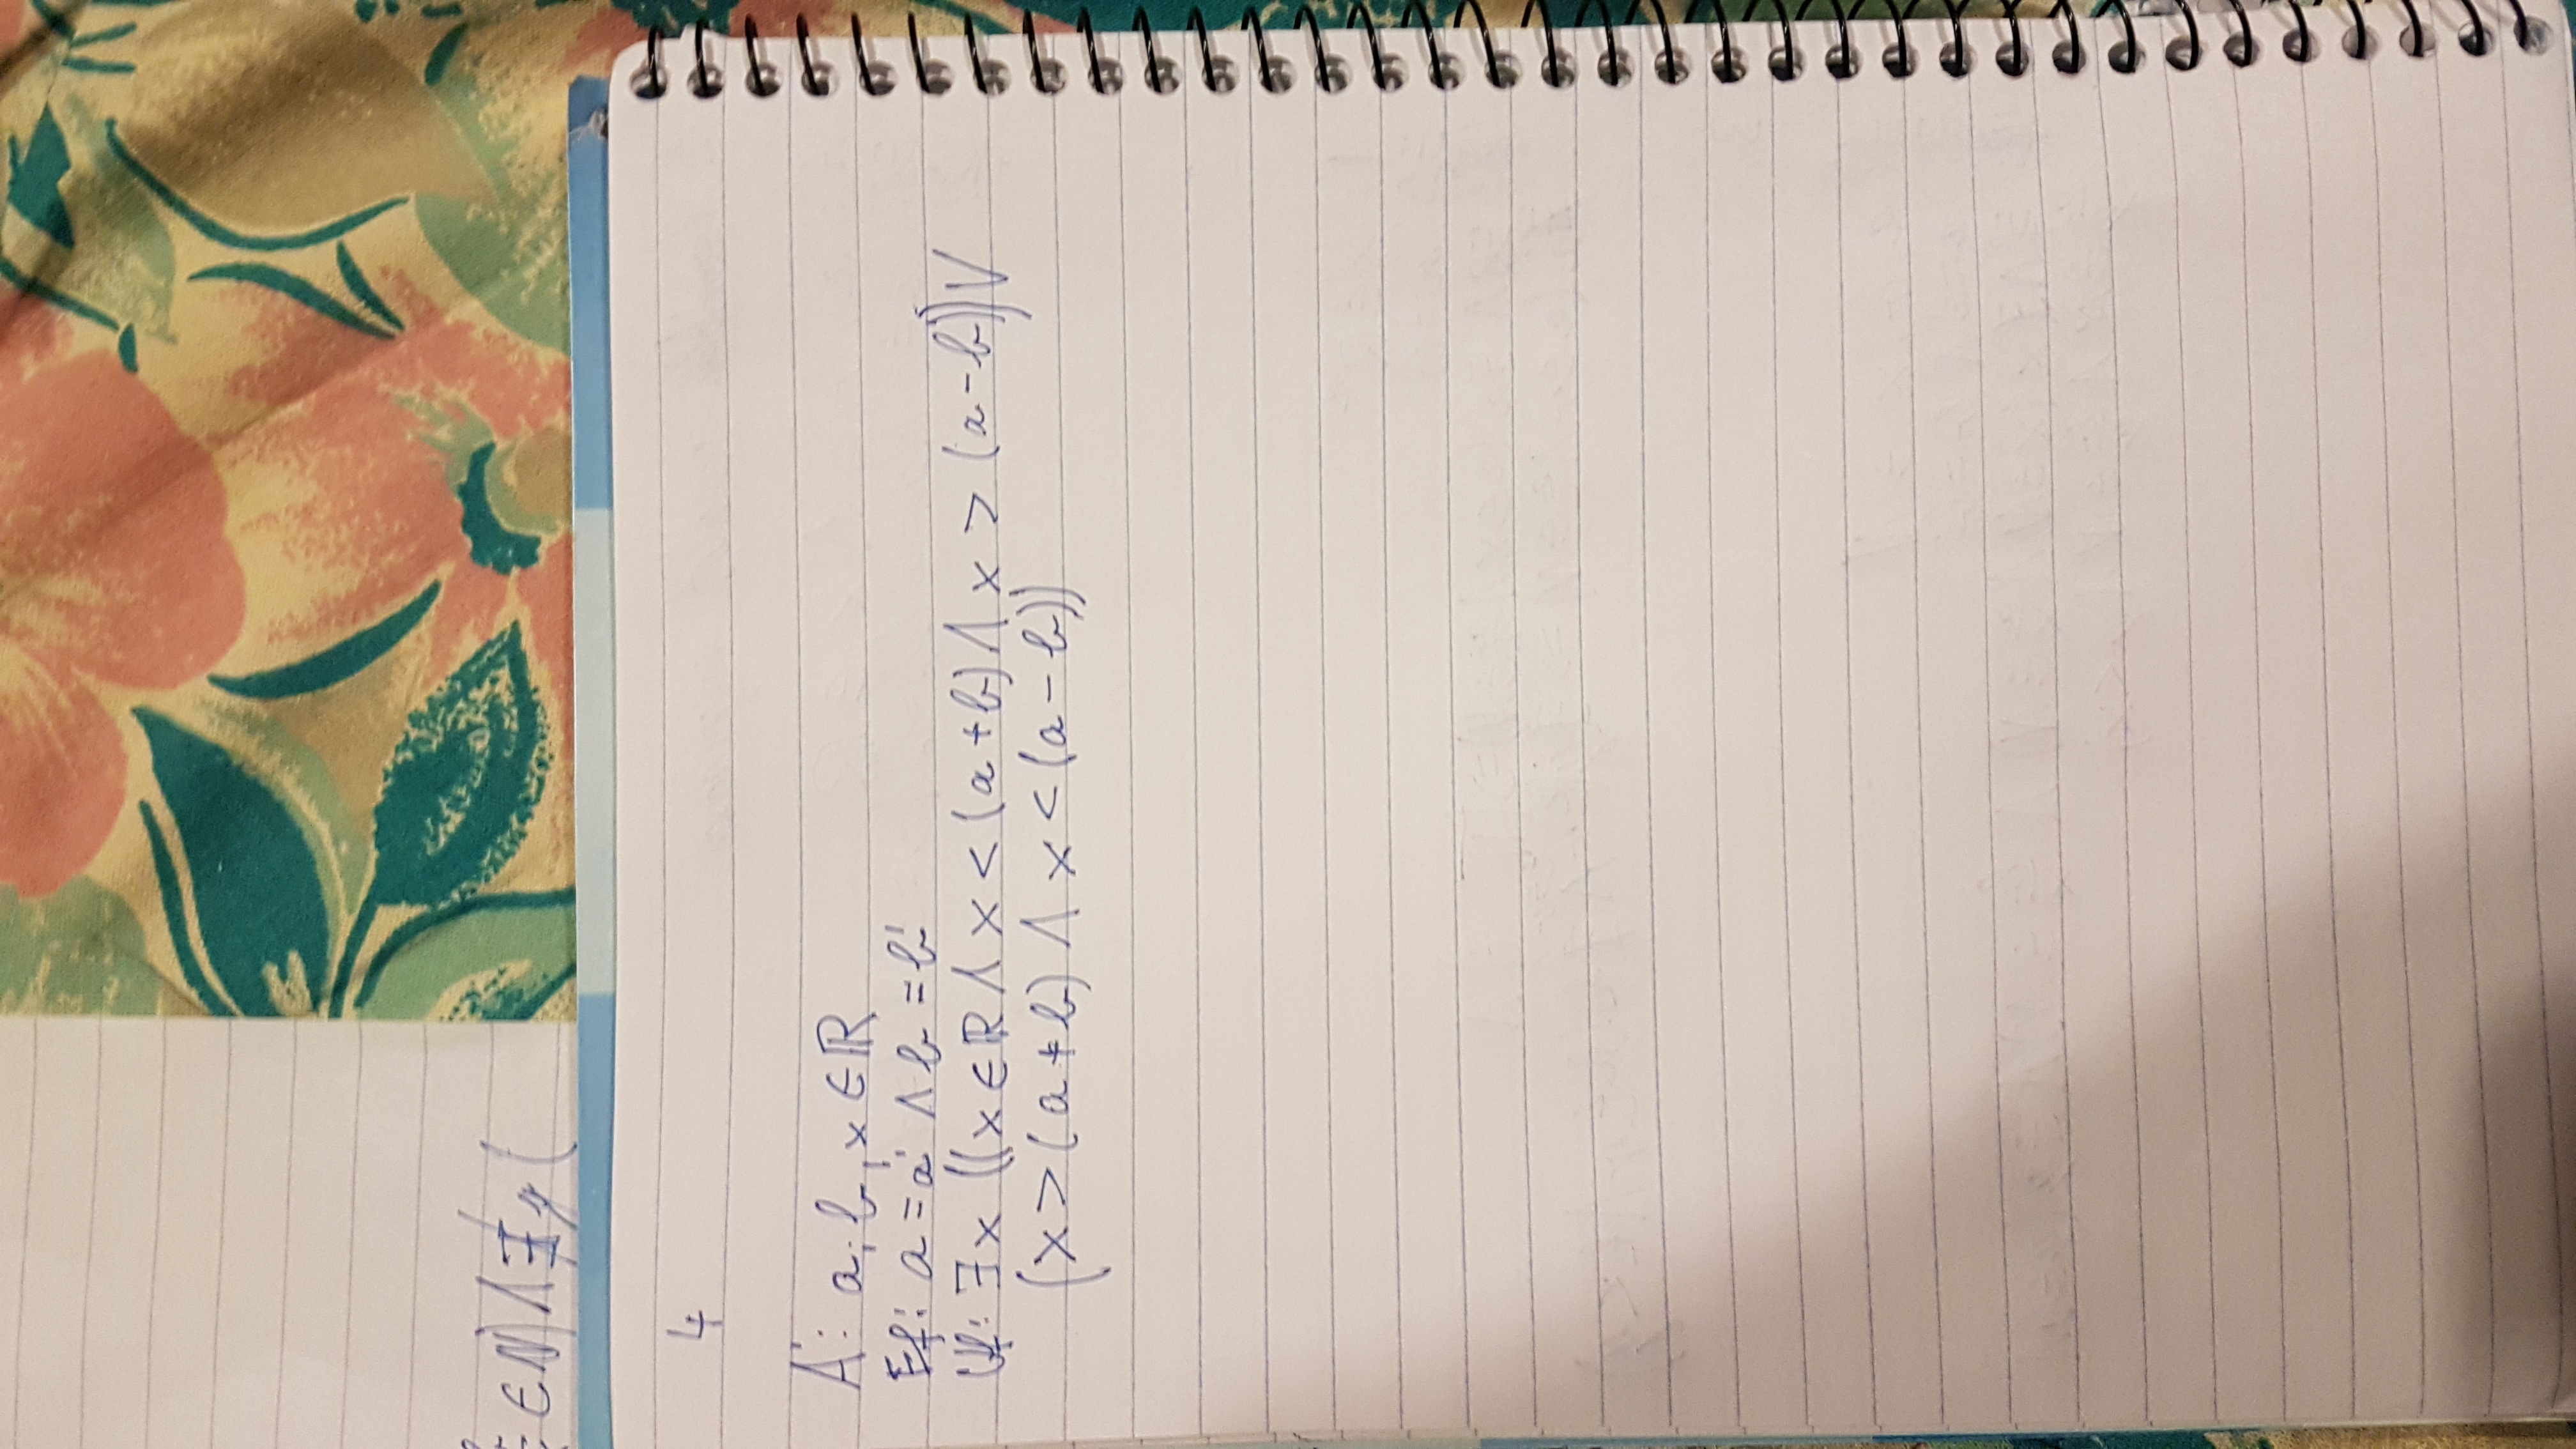 ∈ N) ∧ ∄y (
4
Á: a, b, x ∈ ℝ
Ef: a = a' ∧ b = b'
Uf: ∃x ((x ∈ ℝ ∧ x < (a + b) ∧ x > (a - b)) ∨
(x > (a + b) ∧ x < (a - b)))